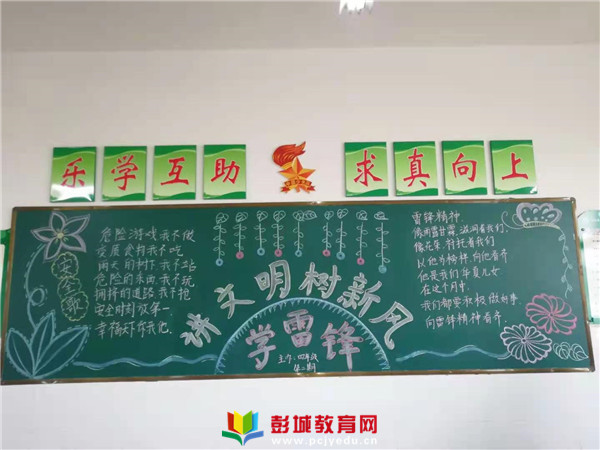 乐学互助
求真向上
安全歌
危险游戏我不做
变质食物我不吃
雨天的树下我不站
危险的东西我不玩
拥挤的道路我不抢
安全时刻放第一
幸福
讲文明树新风
学雷锋
主办:四年级
第二期
雷锋精神
像雨露甘露,滋润着我们;
像花朵 衬托着我们
以他为榜样 向他看齐
他是我们华夏儿女
在这个月中
我们都要积极做好事
向雷锋精神看齐.
彭城教育网
www.pcjyedu.cn